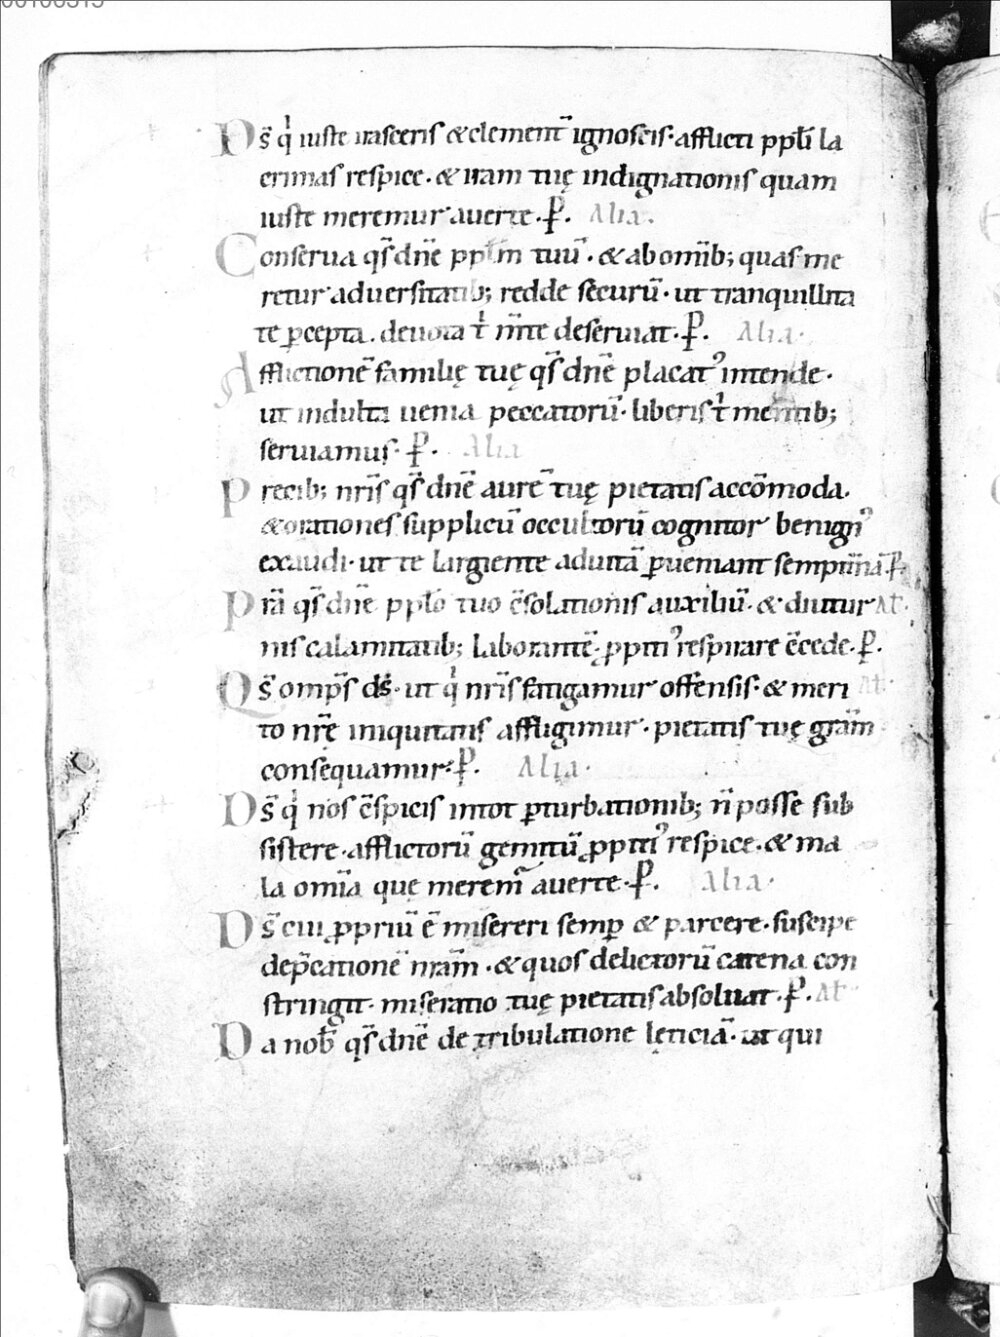 D s̄ qͥ iuste irasceris & clement̄ ignoscis· afflicti ppłi la
crimas respice· & iram tuę indignationis quam
iuste meremur auerte· P̄· Alia·
Conserua qs̄ dn̄e ppłm tuū· & ab om̄ib; quas me
retur aduersitatib; redde secūrū· ut tranquillita
te ꝑcepta· deuota t̄ m̄te deseruiat· P̄· Alia·
Afflictionē familię tuę qs̄ dn̄e placatꝰ intende·
ut indulta uenia peccatorū· liberis t̄ mentib;
seruiamus· P̄· Alia
Precib; nr̄is qs̄ dn̄e aurē tuę pietatis accōmoda·
& orationes supplicū occultorū cognitor benignꝰ
exaudi· ut te largiente ad uitā ꝑueniant sempit̄nā· P̄·
Pr̄a qs̄ dn̄e ppło tuo c̄solationis auxiliū· & diutur Al̄·
nis calamitatib; laborantē· ꝓpitiꝰ respirare c̄cede· P̄·
Qs̄ omps̄ ds̄· ut qͥ nr̄is fatigamur offensis· & meri Al̄·
to nr̄e iniquitatis affligimur· pietatis tuę grām
consequamur· P̄· Alia·
Ds̄ qͥ nos c̄spicis in tot ꝑturbationib; n̄ posse sub
sistere· afflictorū gemitū ꝓpitiꝰ respice· & ma
la om̄ia quę meremr̄ auerte· P̄· Alia·
Ds̄ cui ꝓpriū ē misereri semꝑ & parcere· suscipe
dep̄cationē nr̄am· & quos delictorū catena con
stringit· miseratio tuę pietatis absoluat· P̄· Al̄·
Da nob̄ qs̄ dn̄e de tribulatione lęticiā· ut qui